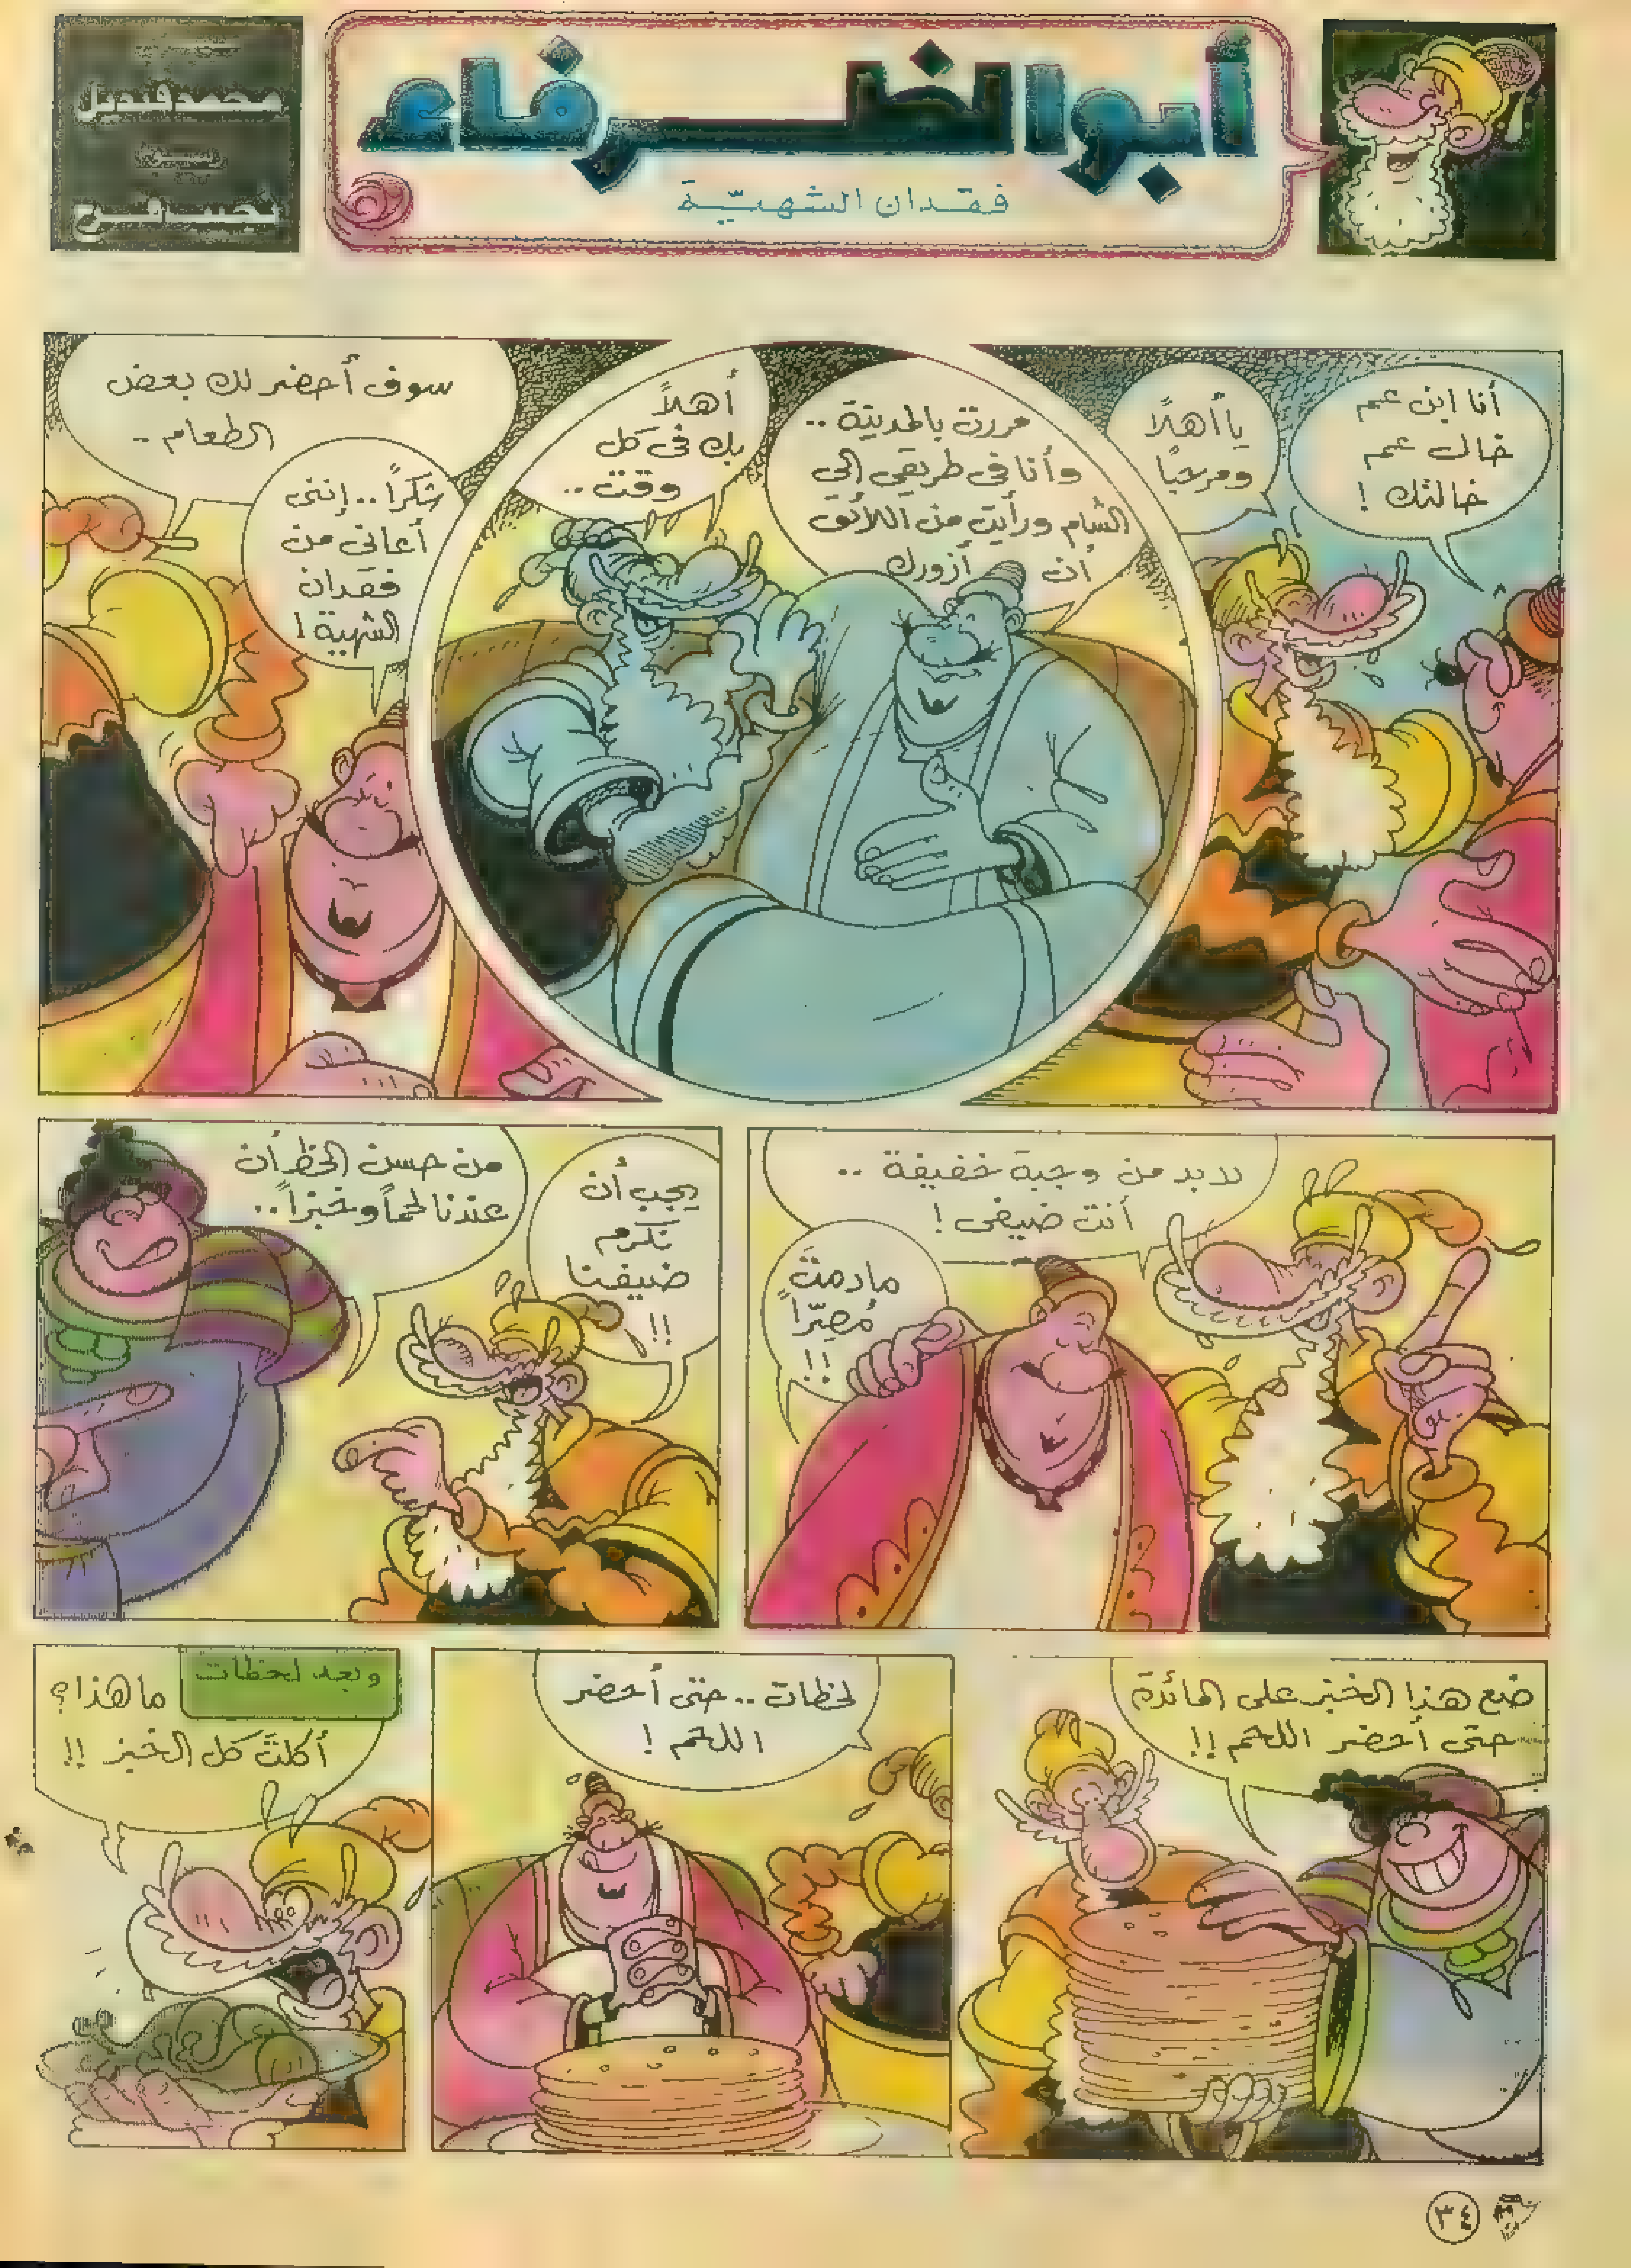 أبو الظرفاء
فقدان الشهيّة
محمد قنديل
رسوم
نجيب فرح
أنا ابن عم
خال عم
خالتك !
يا أهلاً
ومرحبًا
مررت بالمدينة ..
وأنا في طريقي إلى
الشام ورأيت من اللائق
أن أزورك
أهلاً
بك في كل
وقت ..
سوف أحضر لك بعض
الطعام ..
شكراً .. إننى
أعانى من
فقدان
الشهية !
لابد من وجبة خفيفة ..
أنت ضيفى !
مادمتَ
مُصِرّاً
!!
يجب أن
نكرم
ضيفنا
!!
من حسن الحظ أن
عندنا لحماً وخبزاً ..
ضع هذا الخبز على المائدة
حتى أحضر اللحم !!
لحظات .. حتى أحضر
اللحم !
وبعد لحظات
ما هذا؟
أكلتَ كل الخبز !!
٣٤